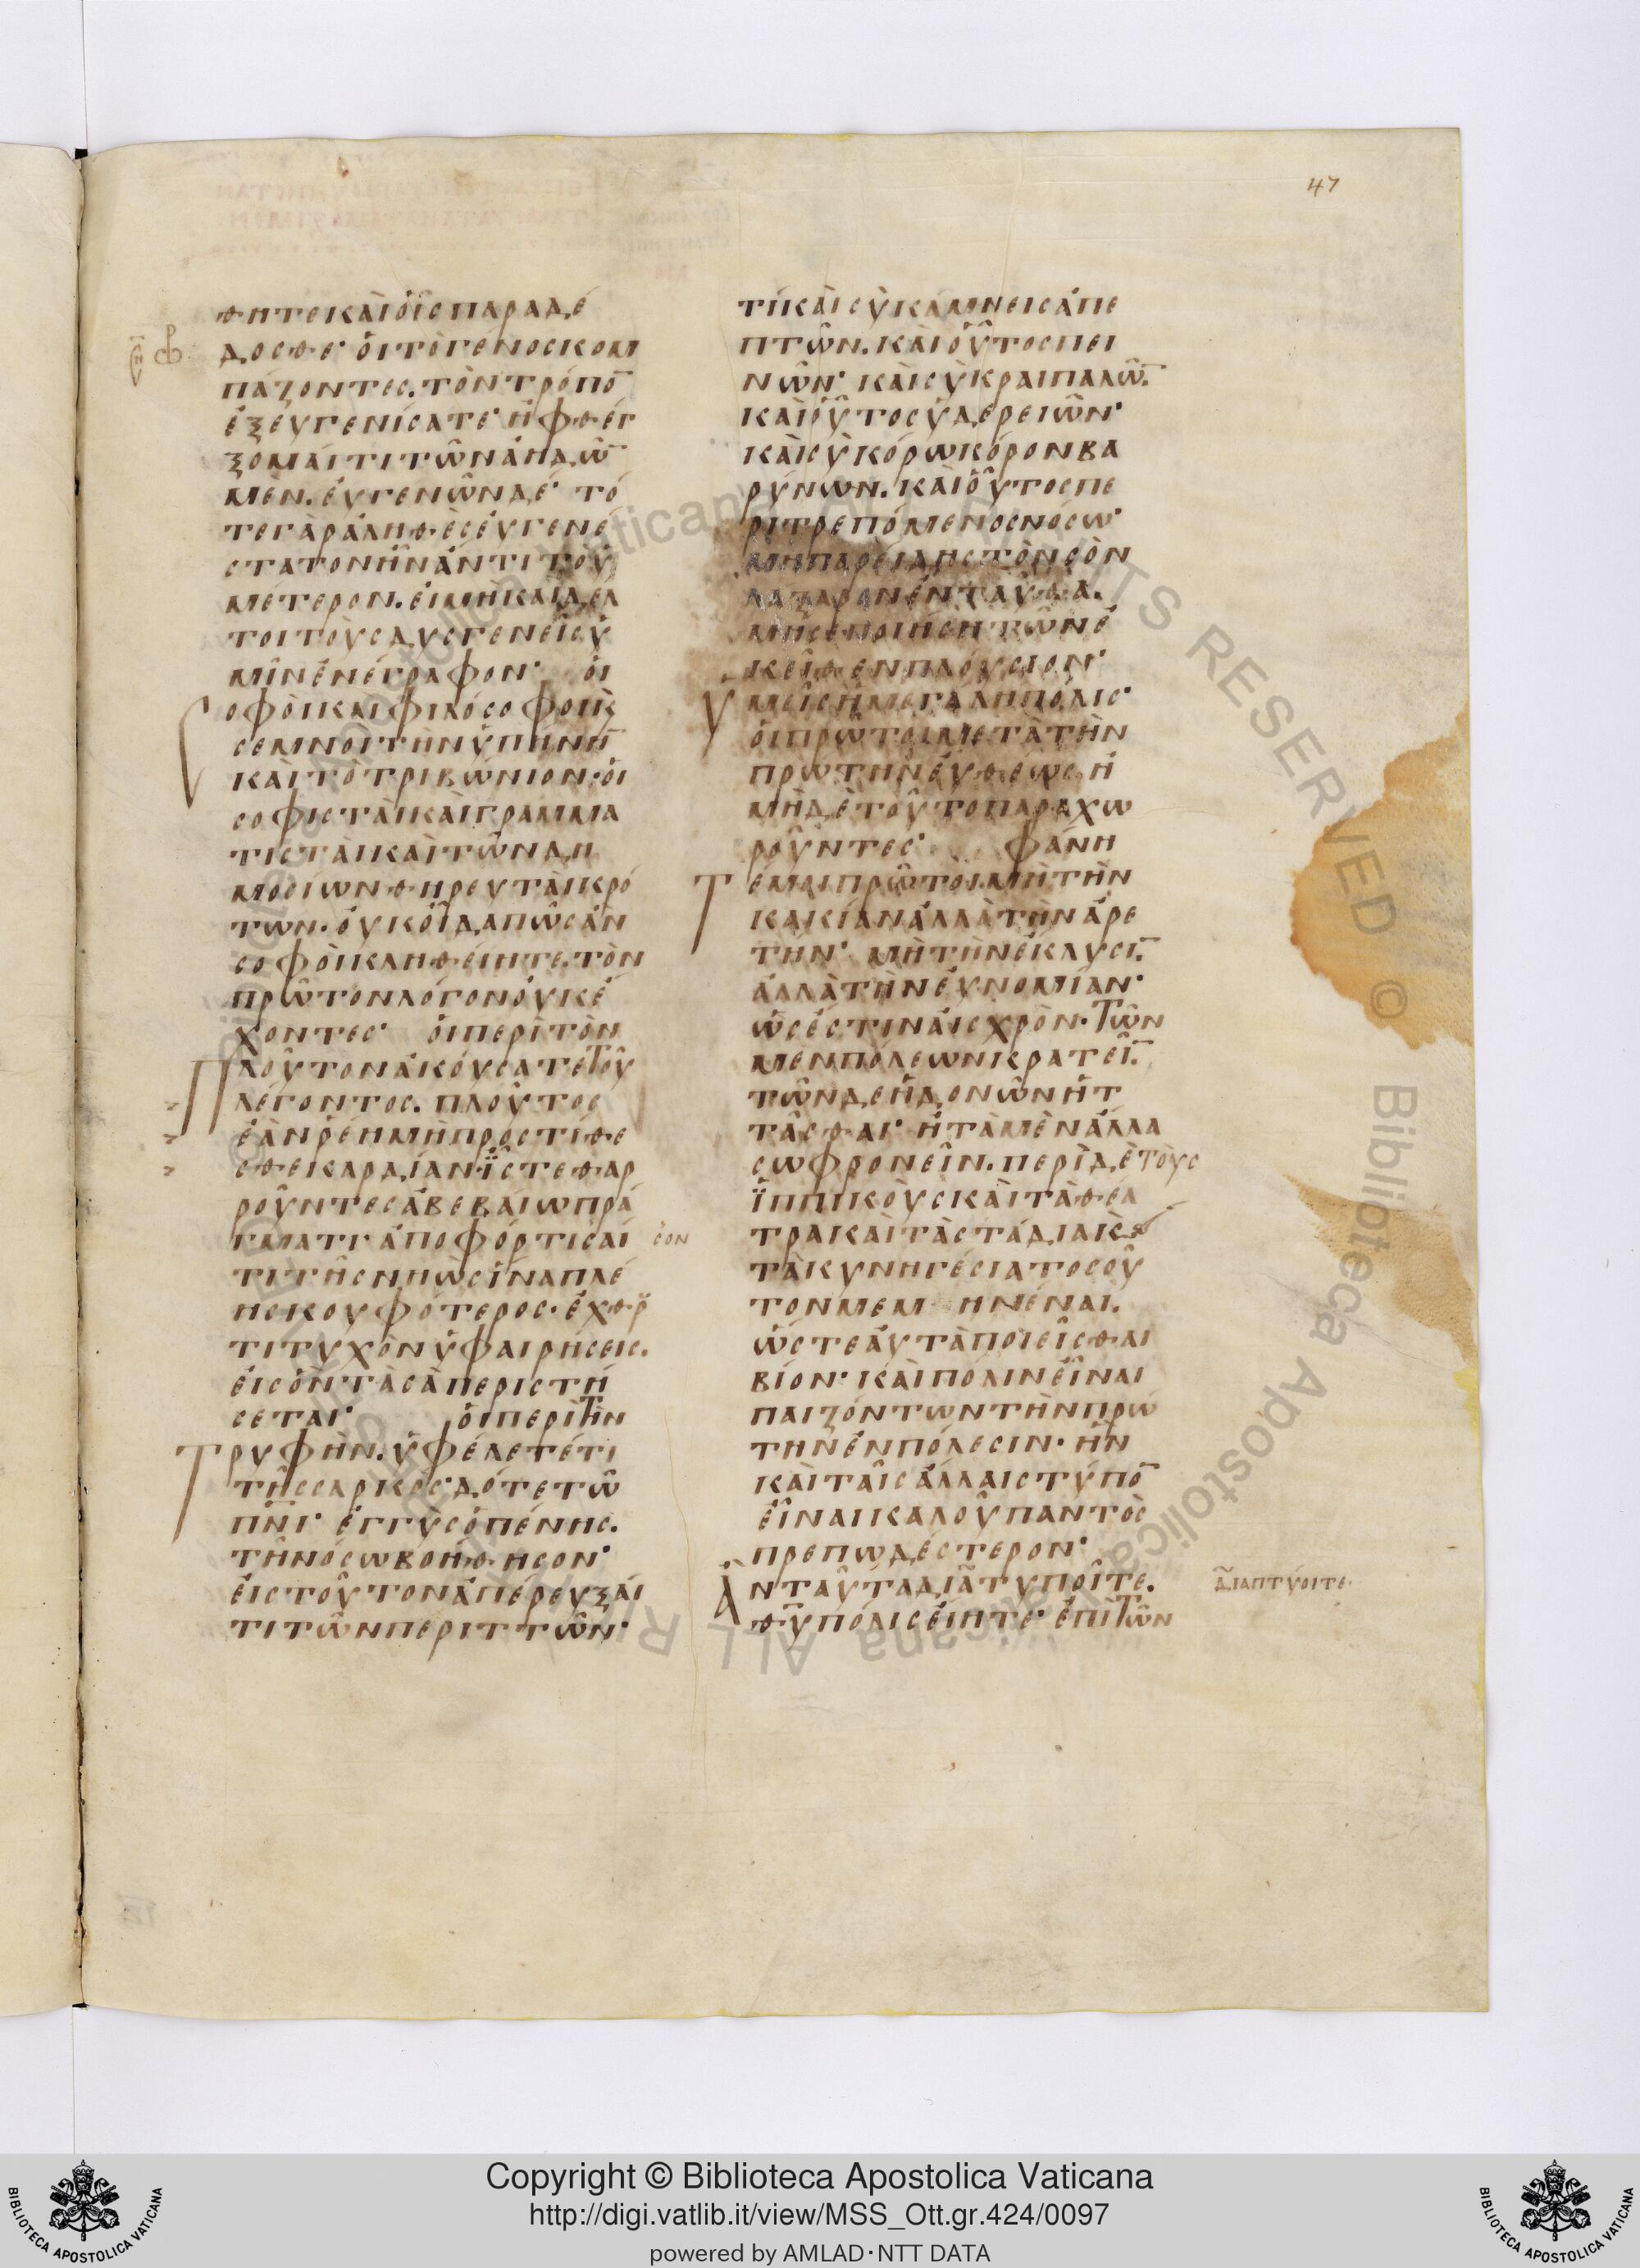 47
θητε καὶ οἷς παραδέ
δοσθε· οἱ τὸ γένος κομ
πάζοντες. τὸν τρόπο̄
ἐξευγενίσατε· ἢ φθέγ
ξομαί τι τῶν ἀηδῶ̄
μὲν. εὐγενῶν δέ· τό
τε γὰρ ἀληθὲς εὐγενέ
στατον ἦν ἀντι τοῦ ὑ
μετερον. εἰ μὴ καὶ δέλ
τοι τοὺς δυσγενεῖς ὑ
μῖν ἐνέγραφον· οἱ
Σοφοὶ καὶ φιλόσοφοι κ̀
σεμνοὶ τὴν ὑπήνη̄
καὶ τὸ τριβώνιον· οἱ
σοφισταὶ καὶ γραμμα
τισταὶ καὶ τῶν δη
μοσίων θηρευταὶ κρό
των. οὐκ οἶδα πῶς ἂν
σοφοὶ κληθείητε. τὸν
πρῶτον λόγον οὐκ ἔ
χοντες· οἱ περὶ τὸν
Πλοῦτον ἀκούσατε τοῦ
λέγοντος. πλοῦτος
ἐὰν ῥέη μὴ προστίθε
σθε καρδίαν· ἴστε θαρ
ροῦντες ἀβεβαίω πρά
γματι· ἀποφόρτισαί σον
τι τῆς νηὸς ἵνα πλέ
ης κουφότερος. ἐχθρ̄
τι τυχὸν ὑφαιρήσεις.
εἰς ὃν τὰ σὰ περιστή
σεται· οἱ περὶ τὴν
Τρυφὴν. ὑφέλετέ τι
τῆς σαρκὸς· δότε τῶ
πν̄ι· ἐγγὺς ὁ πένης.
τῆ νόσω βοήθησον·
εἰς τοῦτον ἀπέρευξαί
τι τῶν περιττῶν·
τί καὶ σὺ κάμνεις ἀπε
πτῶν. καὶ οὗτος πει
νῶν· καὶ σὺ κραιπαλῶ̄.
καὶ οὗτος ὑδερειῶν·
καὶ σὺ κόρω κόρον βα
ρύνων. καὶ οὗτος πε
ριτρεπόμενος νόσω·
μὴ παρείδης τὸν σὸν
λάζαρον ἐνταῦθα.
μή σε ποιήση τῶν ἐ
κεῖθεν πλούσιον·
Ὑμεῖς ἡ μεγάλη πόλις·
οἱ πρῶτοι μετὰ τὴν
πρώτην εὐθέως ἢ
μηδὲ τοῦτο παραχω
ροῦντες· φάνη
Τε μοι πρῶτοι μὴ τὴν
κακίαν ἀλλὰ τὴν ἀρε
τήν· μὴ τὴν ἔκλυσῑ.
ἀλλὰ τὴν εὐνομίαν·
ὡς ἔστιν αἰσχρὸν. τῶν
μὲν πόλεων κρατεῖ̄.
τῶν δὲ ἡδονῶν ἡτ
τᾶσθαι· ἢ τὰ μὲν ἄλλα
σωφρονεῖν. περὶ δὲ τοὺς
ἱππικοὺς καὶ τὰ θέα
τρα καὶ τὰ στάδια κ̀
τὰ κυνηγέσια τοσοῦ
τον μεμηνέναι.
ὥστε αὐτὰ ποιεῖσθαι
βίον· καὶ πόλιν εἶναι
παιζόντων τὴν πρώ
την ἐν πόλεσιν. ἣν
καὶ ταῖς ἄλλαις τύπο̄
εἶναι καλοῦ παντὸς
πρεπωδέστερον·
Ἂν ταῦτα διατυποῖτε. διαπτύοιτε·
θῡ πόλις εἴητε· ἐπὶ τῶν
Copyright © Biblioteca Apostolica Vaticana
http://digi.vatlib.it/view/MSS_Ott.gr.424/0097
powered by AMLAD·NTT DATA
BIBLIOTECA APOSTOLICA VATICANA
BIBLIOTECA APOSTOLICA VATICANA